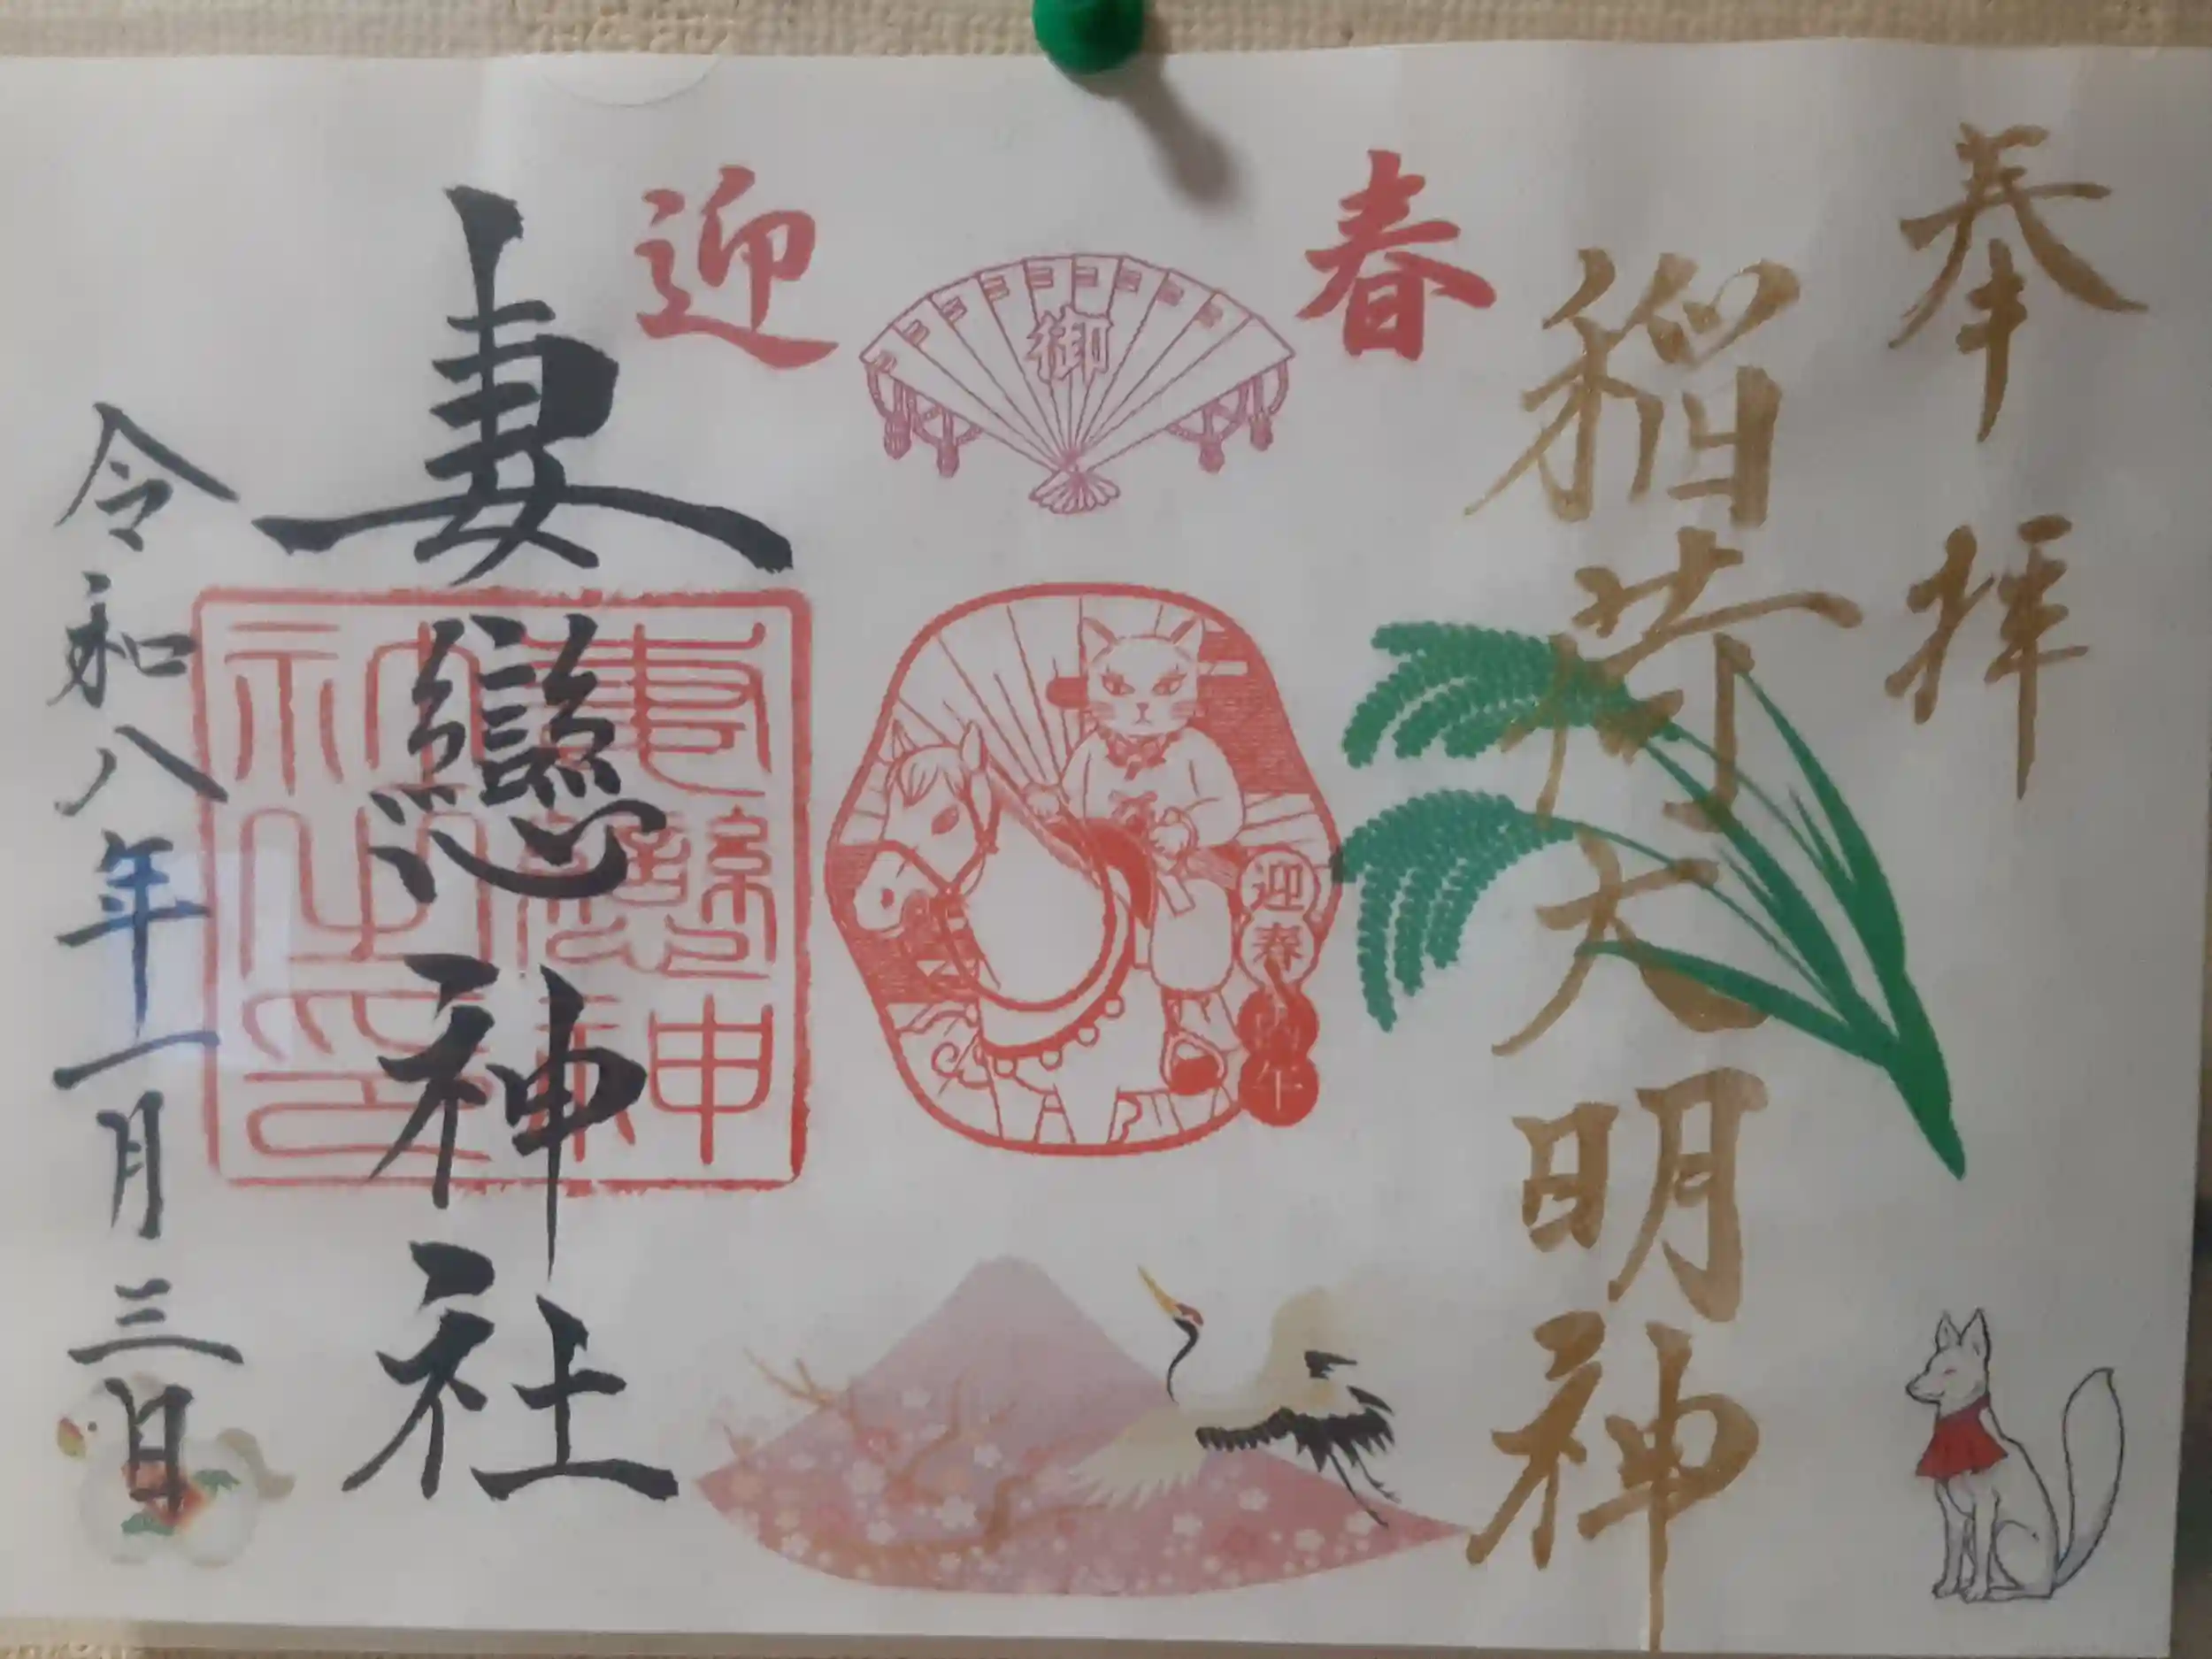 奉拝
稲荷大明神
迎春
御
迎春
丙午
妻戀神社
妻戀神社神璽之印
令和八年一月三日